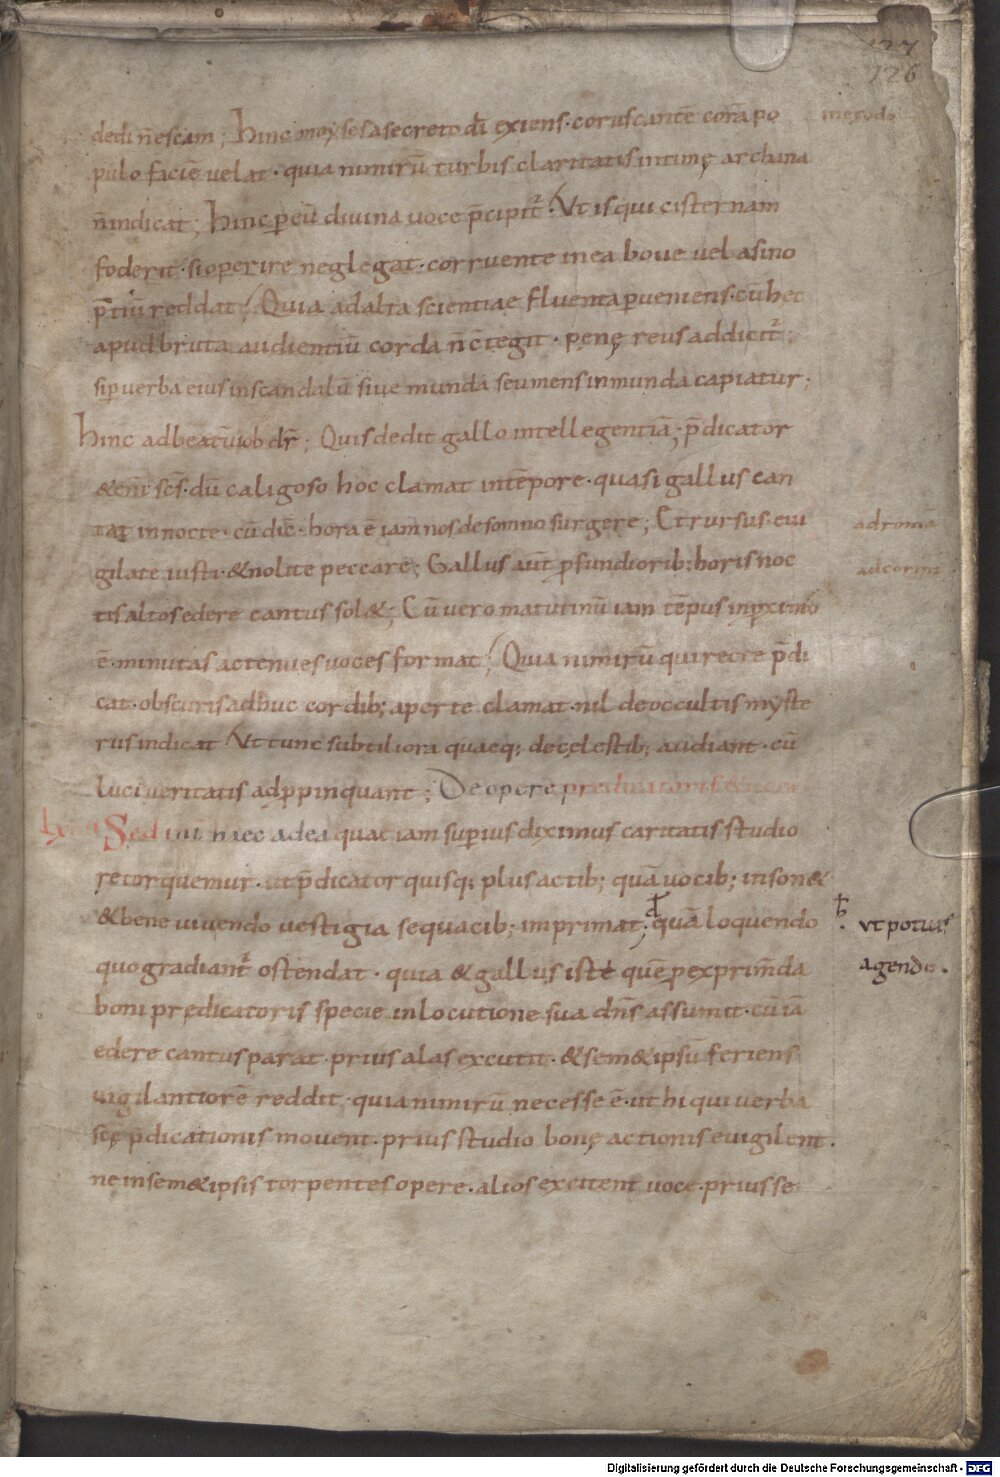 127
126
dedi n̄ escam; Hinc moyses a secreto dī exiens · coruscantē corā po
pulo faciē velat · quia nimirū turbis claritatis intimę archana
n̄ indicat; Hinc p̲ eū divina voce p̄cipit᷑ · Ut is qui cisternam
foderit · si operire neglegat · corruente in ea bove vel asino
p̄tiū reddat; Quia ad alta scientiae fluenta p̲veniens · cū hec
apud bruta audientiū corda n̄ c̄tegit · pęnę reus addicit᷑;
si p̲ verba eius in scandalū sive munda seu mens inmunda capiatur;
Hinc ad beatū iob dr̄; Quis dedit gallo intellegentiā; p̄dicator
&enī sc̄s · dū caligoso hoc clamat in tēpore · quasi gallus can
tat in nocte · cū dic̄ · hora ē iam nos de somno surgere; Et rursus · evi
ad romā
gilate iusti · & nolite peccare; Gallus aūt p̲fundiorib; horis noc
ad corint
tis altos edere cantus sol&; Cū vero matutinū iam tēpus in p̲ximo
ē · minutas ac tenues voces format; Quia nimirū qui recte p̄di
cat · obscuris adhuc cordib; aperte clamat · nil de occultis myste
riis indicat Ut tunc subtiliora quaeq; de cęlestib; audiant · cū
luci veritatis adp̲pinquant; De opere predicatoris & voce
Sed int̄ haec ad ea quae iam sup̲ius diximus caritatis studio
retorquemur · ut p̄dicator quisq; plus actib; quā vocib; inson&
& bene vivendo vestigia sequacib; imprimat; quā loquendo
ut potius
agendo.
quo gradiant᷑ ostendat · quia & gallus iste quē p̲ exprim̄da
boni prędicatoris specie in locutione sua dn̄s assumit · cū iā
edere cantus parat · prius alas excutit · & sem&ipsū feriens
vigilantiorē reddit · quia nimirū necesse ē · ut hi qui verba
scę p̄dicationis movent · prius studio bonę actionis evigilent ·
ne in sem&ipsis torpentes opere · alios excitent voce · prius se
Digitalisierung gefördert durch die Deutsche Forschungsgemeinschaft - DFG